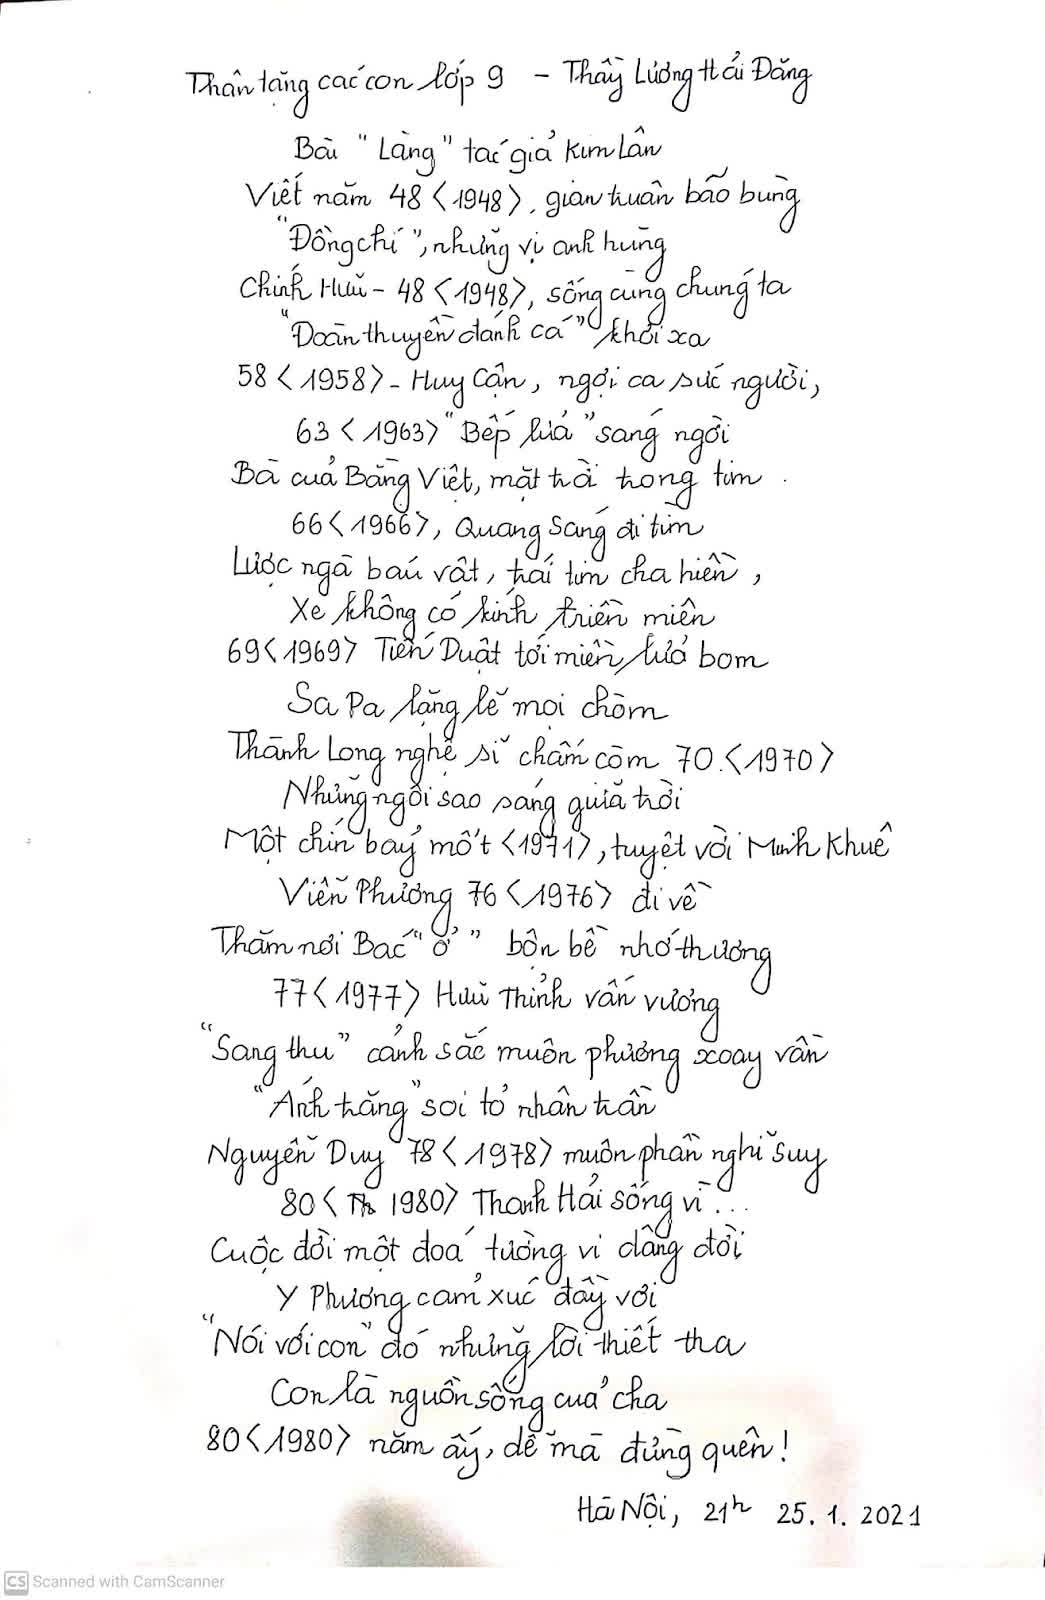 Thân tặng các con lớp 9 - Thầy Lương Hải Đăng
Bài "Làng" tác giả Kim Lân
Viết năm 48 <1948>, gian truân bão bùng
"Đồng chí", những vị anh hùng
Chính Hữu - 48 <1948>, sống cùng chúng ta
"Đoàn thuyền đánh cá" khơi xa
58 <1958> - Huy Cận, ngợi ca sức người,
63 <1963> "Bếp lửa" sáng ngời
Bà của Bằng Việt, mặt trời trong tim
66 <1966>, Quang Sáng đi tìm
Lược ngà báu vật, trái tim cha hiền,
Xe không có kính triền miên
69 <1969> Tiến Duật tới miền lửa bom
Sa Pa lặng lẽ mọi chòm
Thành Long nghệ sĩ chấm còm 70 <1970>
Những ngôi sao sáng giữa trời
Một chín bảy mốt <1971>, tuyệt vời Minh Khuê
Viễn Phương 76 <1976> đi về
Thăm nơi Bác "ở" bộn bề nhớ thương
77 <1977> Hữu Thỉnh vấn vương
"Sang thu" cảnh sắc muôn phương xoay vần
"Ánh trăng" soi tỏ nhân trần
Nguyễn Duy 78 <1978> muôn phần nghĩ suy
80 <Th 1980> Thanh Hải sống vì...
Cuộc đời một đoá tường vi dâng đời
Y Phương cảm xúc đầy vơi
"Nói với con" đó những lời thiết tha
Con là nguồn sống của cha
80 <1980> năm ấy, dễ mà đừng quên!
Hà Nội, 21h 25.1.2021
CS Scanned with CamScanner